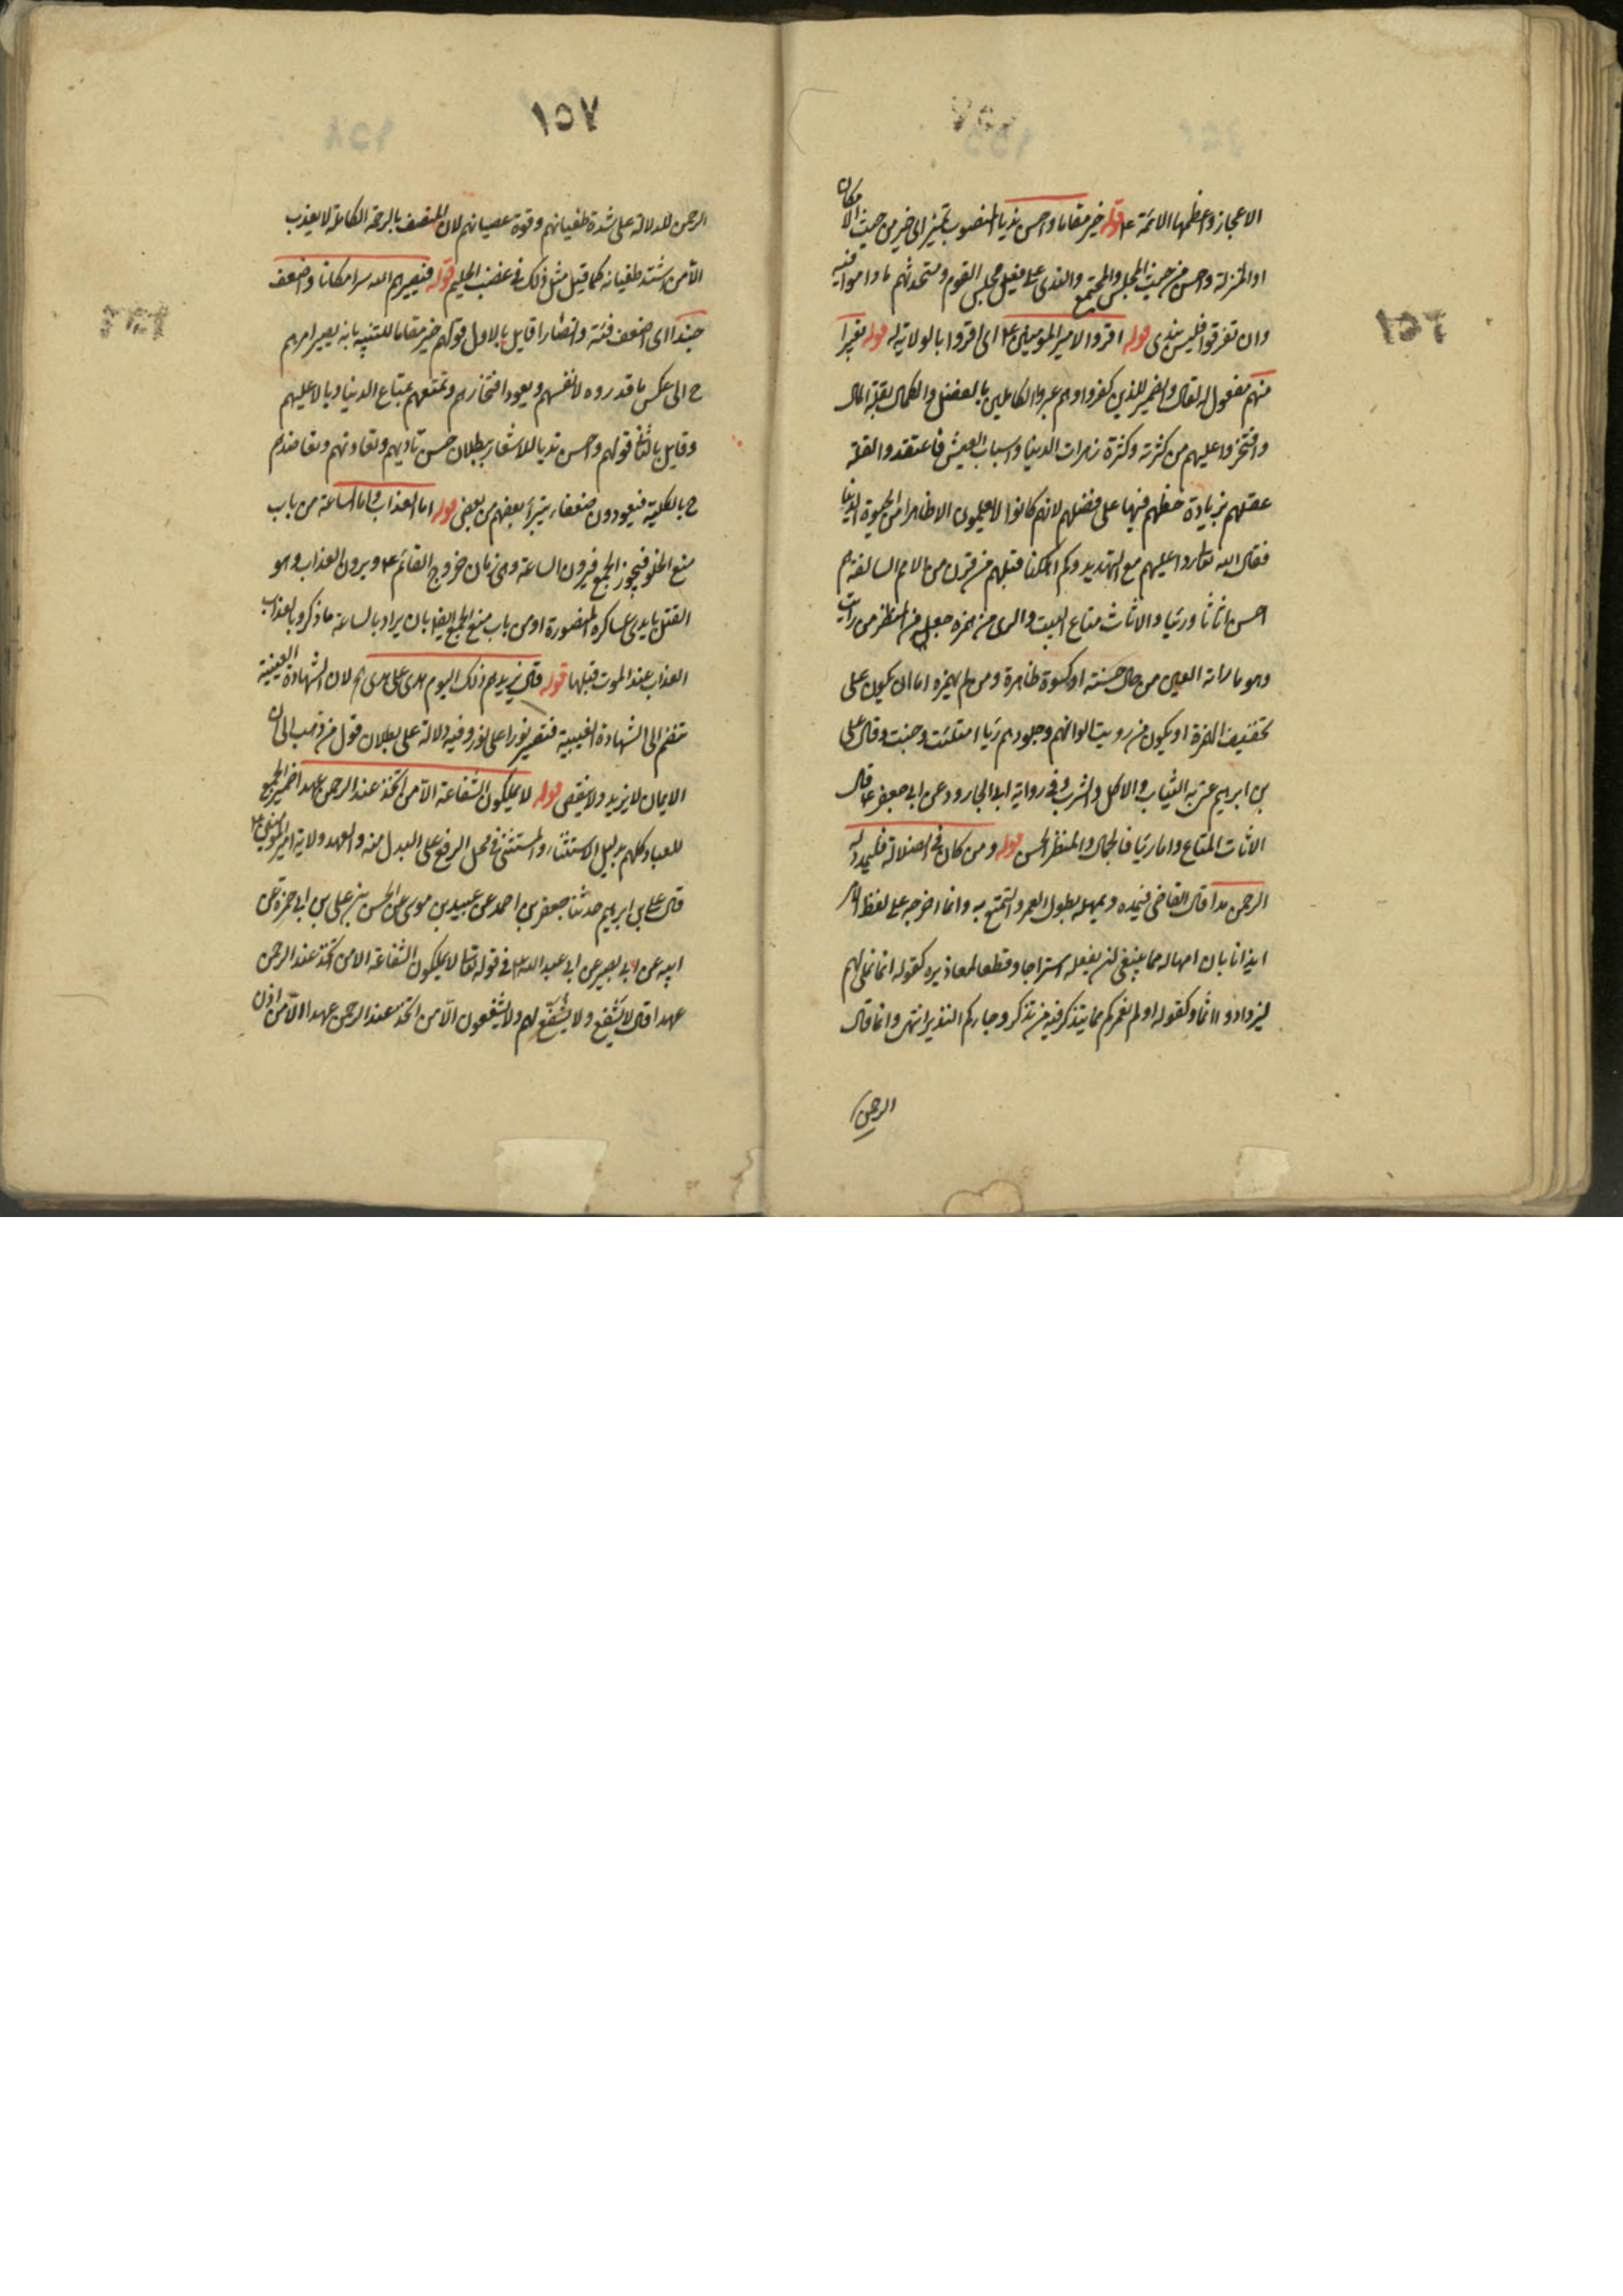 ١٥٦
الاعجاز واعظمها الائمة ع قوله خير مقاما واحسن نديا المنصوب تميز اي خير من حيث الامكان
او المنزلة واحسن من حيث المجلس والمجتمع والندى على فعيل مجلس القوم ومتحدثهم ما داموا فيه
وان تفرقوا فليس بندى قوله اقروا لامير المومنين ع اى اقروا بالولاية له قوله تعييرا
منهم مفعول له لقال والضمير للذين كفروا اوهم عيروا الكاملين بالفضل والكمال بقلة المال
وافتخروا عليهم من كثرته وكثرة زهرات الدنيا واسباب العيش فاعتقدوا لقلة
عقلهم بزيادة حظهم فيها على فضلهم لانهم كانوا لا يعلمون الا ظاهرا من الحيوة الدنيا
فقال الله تعالى ردا عليهم مع التهديد وكم اهلكنا قبلهم من قرن من الامم السالفة هم
احسن اثاثا ورئيا والاثاث متاع البيت والرى من همزه جعله من المنظر من رايت
وهو ما راته العين من حال حسنة او كسوة ظاهرة ومن لم يهمزه اما ان يكون على
تخفيف الهمزة او يكون من رويت الوانهم وجلودهم ريا امتلئت وحسنت وقال على
بن ابرهيم عنى به الثياب والاكل والشرب وفى رواية ابى الجارود عن ابى جعفر ع قال
الاثاث المتاع واما رئيا فالجمال والمنظر الحسن قوله ومن كان فى الضلالة فليمدد له
الرحمن مدا قال القاضى فيمده ويمهله بطول العمر والتمتع به وانما اخرجه على لفظ الامر
ايذانا بان امهاله مما ينبغى ان يفعله استدراجا وقطعا لمعاذيره كقوله انما نملى لهم
ليزدادوا اثما وكقوله اولم نعمركم ما يتذكر فيه من تذكر وجاءكم النذير انتهى وانما قال
الرحمن
١٥٧
الرحمن للدلالة على شدة طغيانهم وقوة عصيانهم لان المتصف بالرحمة الكاملة لا يعذب
الا من اشتد طغيانه كما قيل مثل ذلك فى غضب الحليم قوله فيصيرهم الله شرا مكانا واضعف
جندا اى اضعف فئة وانصارا قابل بالاول قولهم خير مقاما للتنبيه بانه يصير امرهم
ح الى عكس ما قدروه لانفسهم ويعود افتخارهم وتمتعهم بمتاع الدنيا وبالا عليهم
وقابل بالثانى قولهم واحسن نديا للاشعار ببطلان حسن ناديهم وتعاونهم وتعاضدهم
ح بالكلية فيعودون ضعفاء يتبرأ بعضهم من بعض قوله اما العذاب واما الساعة من باب
منع الخلو فيجوز الجمع فيرون الساعة وهى زمان خروج القائم ع ويرون العذاب وهو
القتل بايدى عساكره المنصورة او من باب منع الجمع ايضا بان يراد بالساعة ما ذكر وبالعذاب
العذاب عند الموت قبلها قوله قال يزيدهم ذلك اليوم هدى على هدى اه لان الشهادة العينية
تنضم الى الشهادة الغيبية فتصير نورا على نور وفيه دلالة على بطلان قول من ذهب الى ان
الايمان لا يزيد ولا ينقص قوله لا يملكون الشفاعة الا من اتخذ عند الرحمن عهدا ضمير الجمع
للعباد كلهم بدليل الاستثناء والمستثنى فى محل الرفع على البدل منه والعهد ولاية امير المومنين ع
قال على بن ابرهيم حدثنا جعفر بن احمد عن عبيد بن موسى عن الحسن بن على بن ابى حمزة عن
ابيه عن ابى بصير عن ابى عبد الله ع فى قوله تعالى لا يملكون الشفاعة الا من اتخذ عند الرحمن
عهدا قال لا يَشفع ولا يُشَفَّع لهم ولا يشفعون الا من اتخذ عند الرحمن عهدا الا من اذن